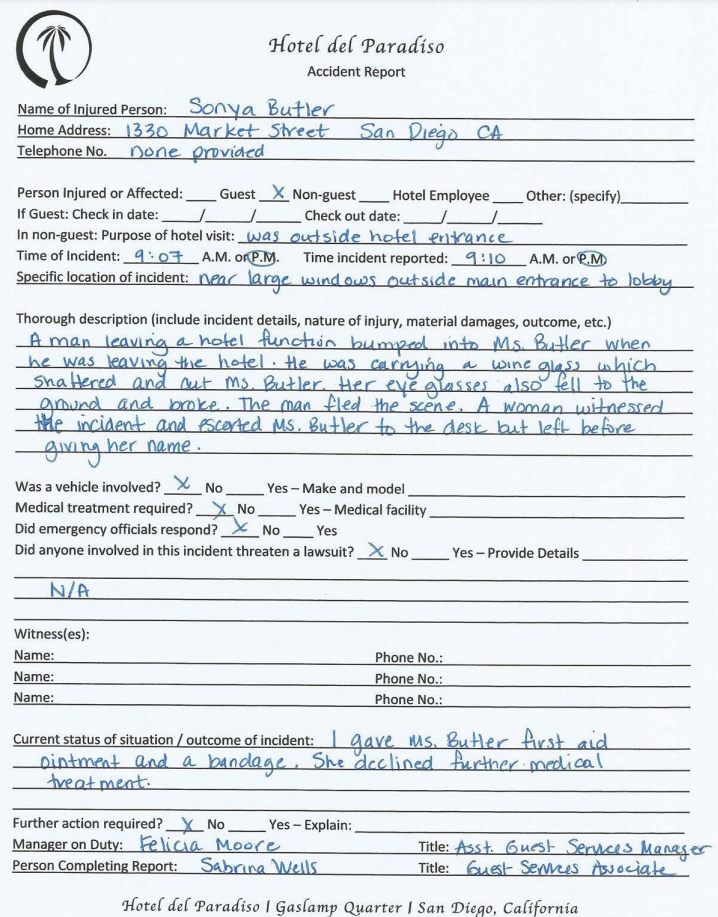 Hotel del Paradiso
Accident Report
Name of Injured Person: Sonya Butler
Home Address: 1330 Market Street San Diego CA
Telephone No. none provided
Person Injured or Affected: ____ Guest X Non-guest ____ Hotel Employee ____ Other: (specify)________
If Guest: Check in date: ____/____/____ Check out date: ____/____/____
In non-guest: Purpose of hotel visit: was outside hotel entrance
Time of Incident: 9:07 A.M. or P.M. Time incident reported: 9:10 A.M. or P.M
Specific location of incident: near large windows outside main entrance to lobby
Thorough description (include incident details, nature of injury, material damages, outcome, etc.)
A man leaving a hotel function bumped into Ms. Butler when
he was leaving the hotel. He was carrying a wine glass which
shattered and cut Ms. Butler. Her eye glasses also fell to the
ground and broke. The man fled the scene. A woman witnessed
the incident and escorted Ms. Butler to the desk but left before
giving her name.
Was a vehicle involved? X No ____ Yes – Make and model ________
Medical treatment required? X No ____ Yes – Medical facility ________
Did emergency officials respond? X No ____ Yes
Did anyone involved in this incident threaten a lawsuit? X No ____ Yes – Provide Details ________
N/A
Witness(es):
Name: Phone No.:
Name: Phone No.:
Name: Phone No.:
Current status of situation / outcome of incident: I gave Ms. Butler first aid
ointment and a bandage. She declined further medical
treatment.
Further action required? X No ____ Yes – Explain: ________
Manager on Duty: Felicia Moore Title: Asst. Guest Services Manager
Person Completing Report: Sabrina Wells Title: Guest Services Associate
Hotel del Paradiso | Gaslamp Quarter | San Diego, California